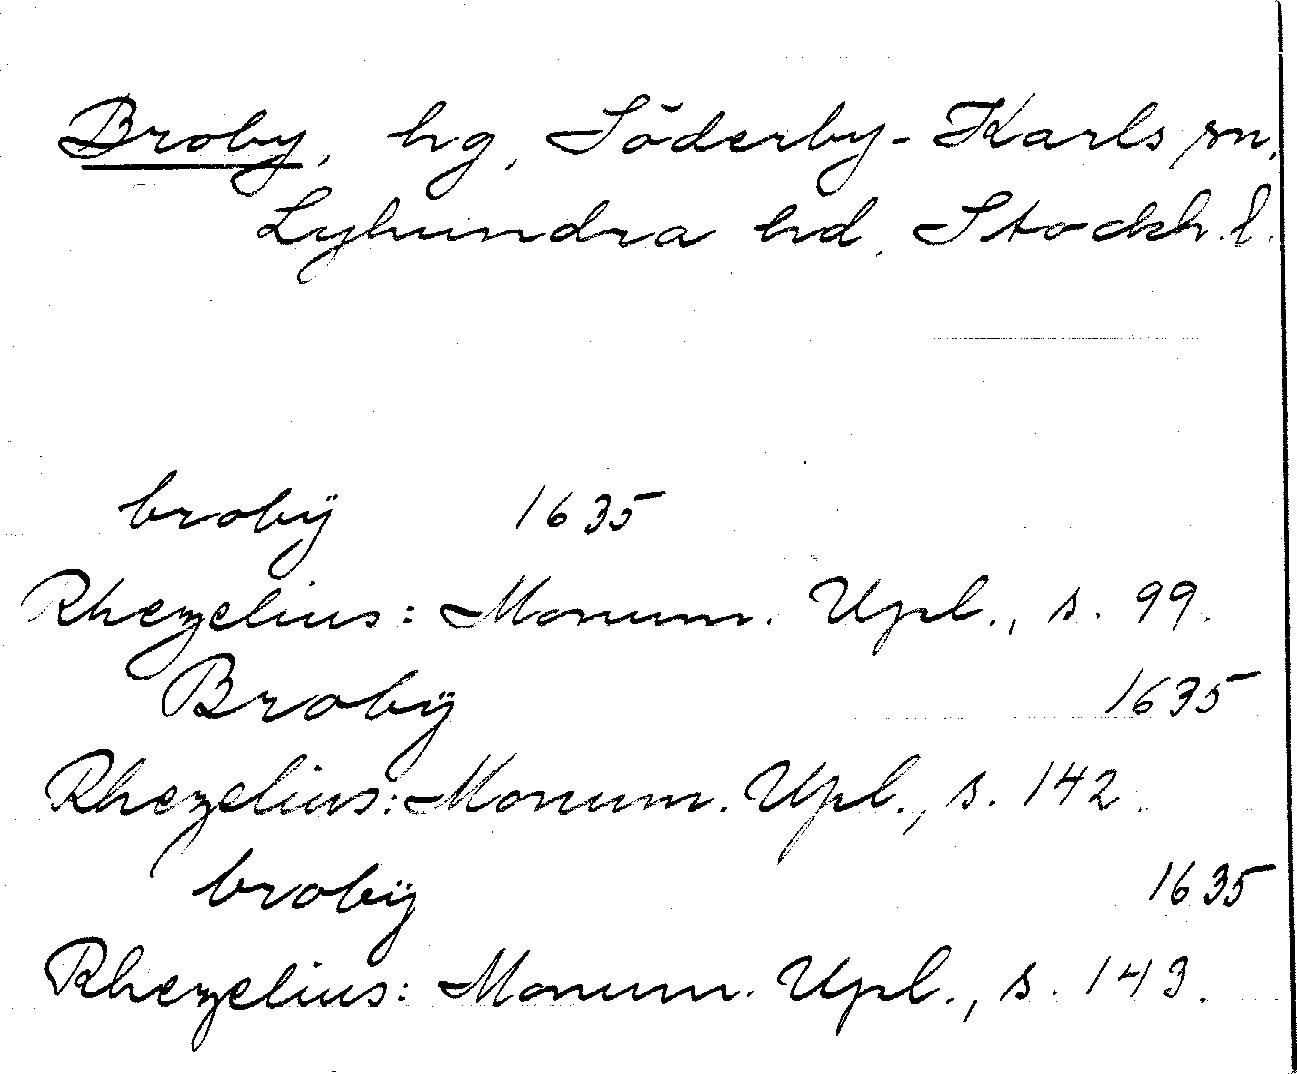 Broby, hg, Söderby-Karls sn,
Lyhundra hd. Stockh. l.
brobÿ 1635
Rhezelius: Monum. Upl., s. 99.
Brobÿ 1635
Rhezelius: Monum. Upl., s. 142.
brobÿ 1635
Rhezelius: Monum. Upl., s. 143.